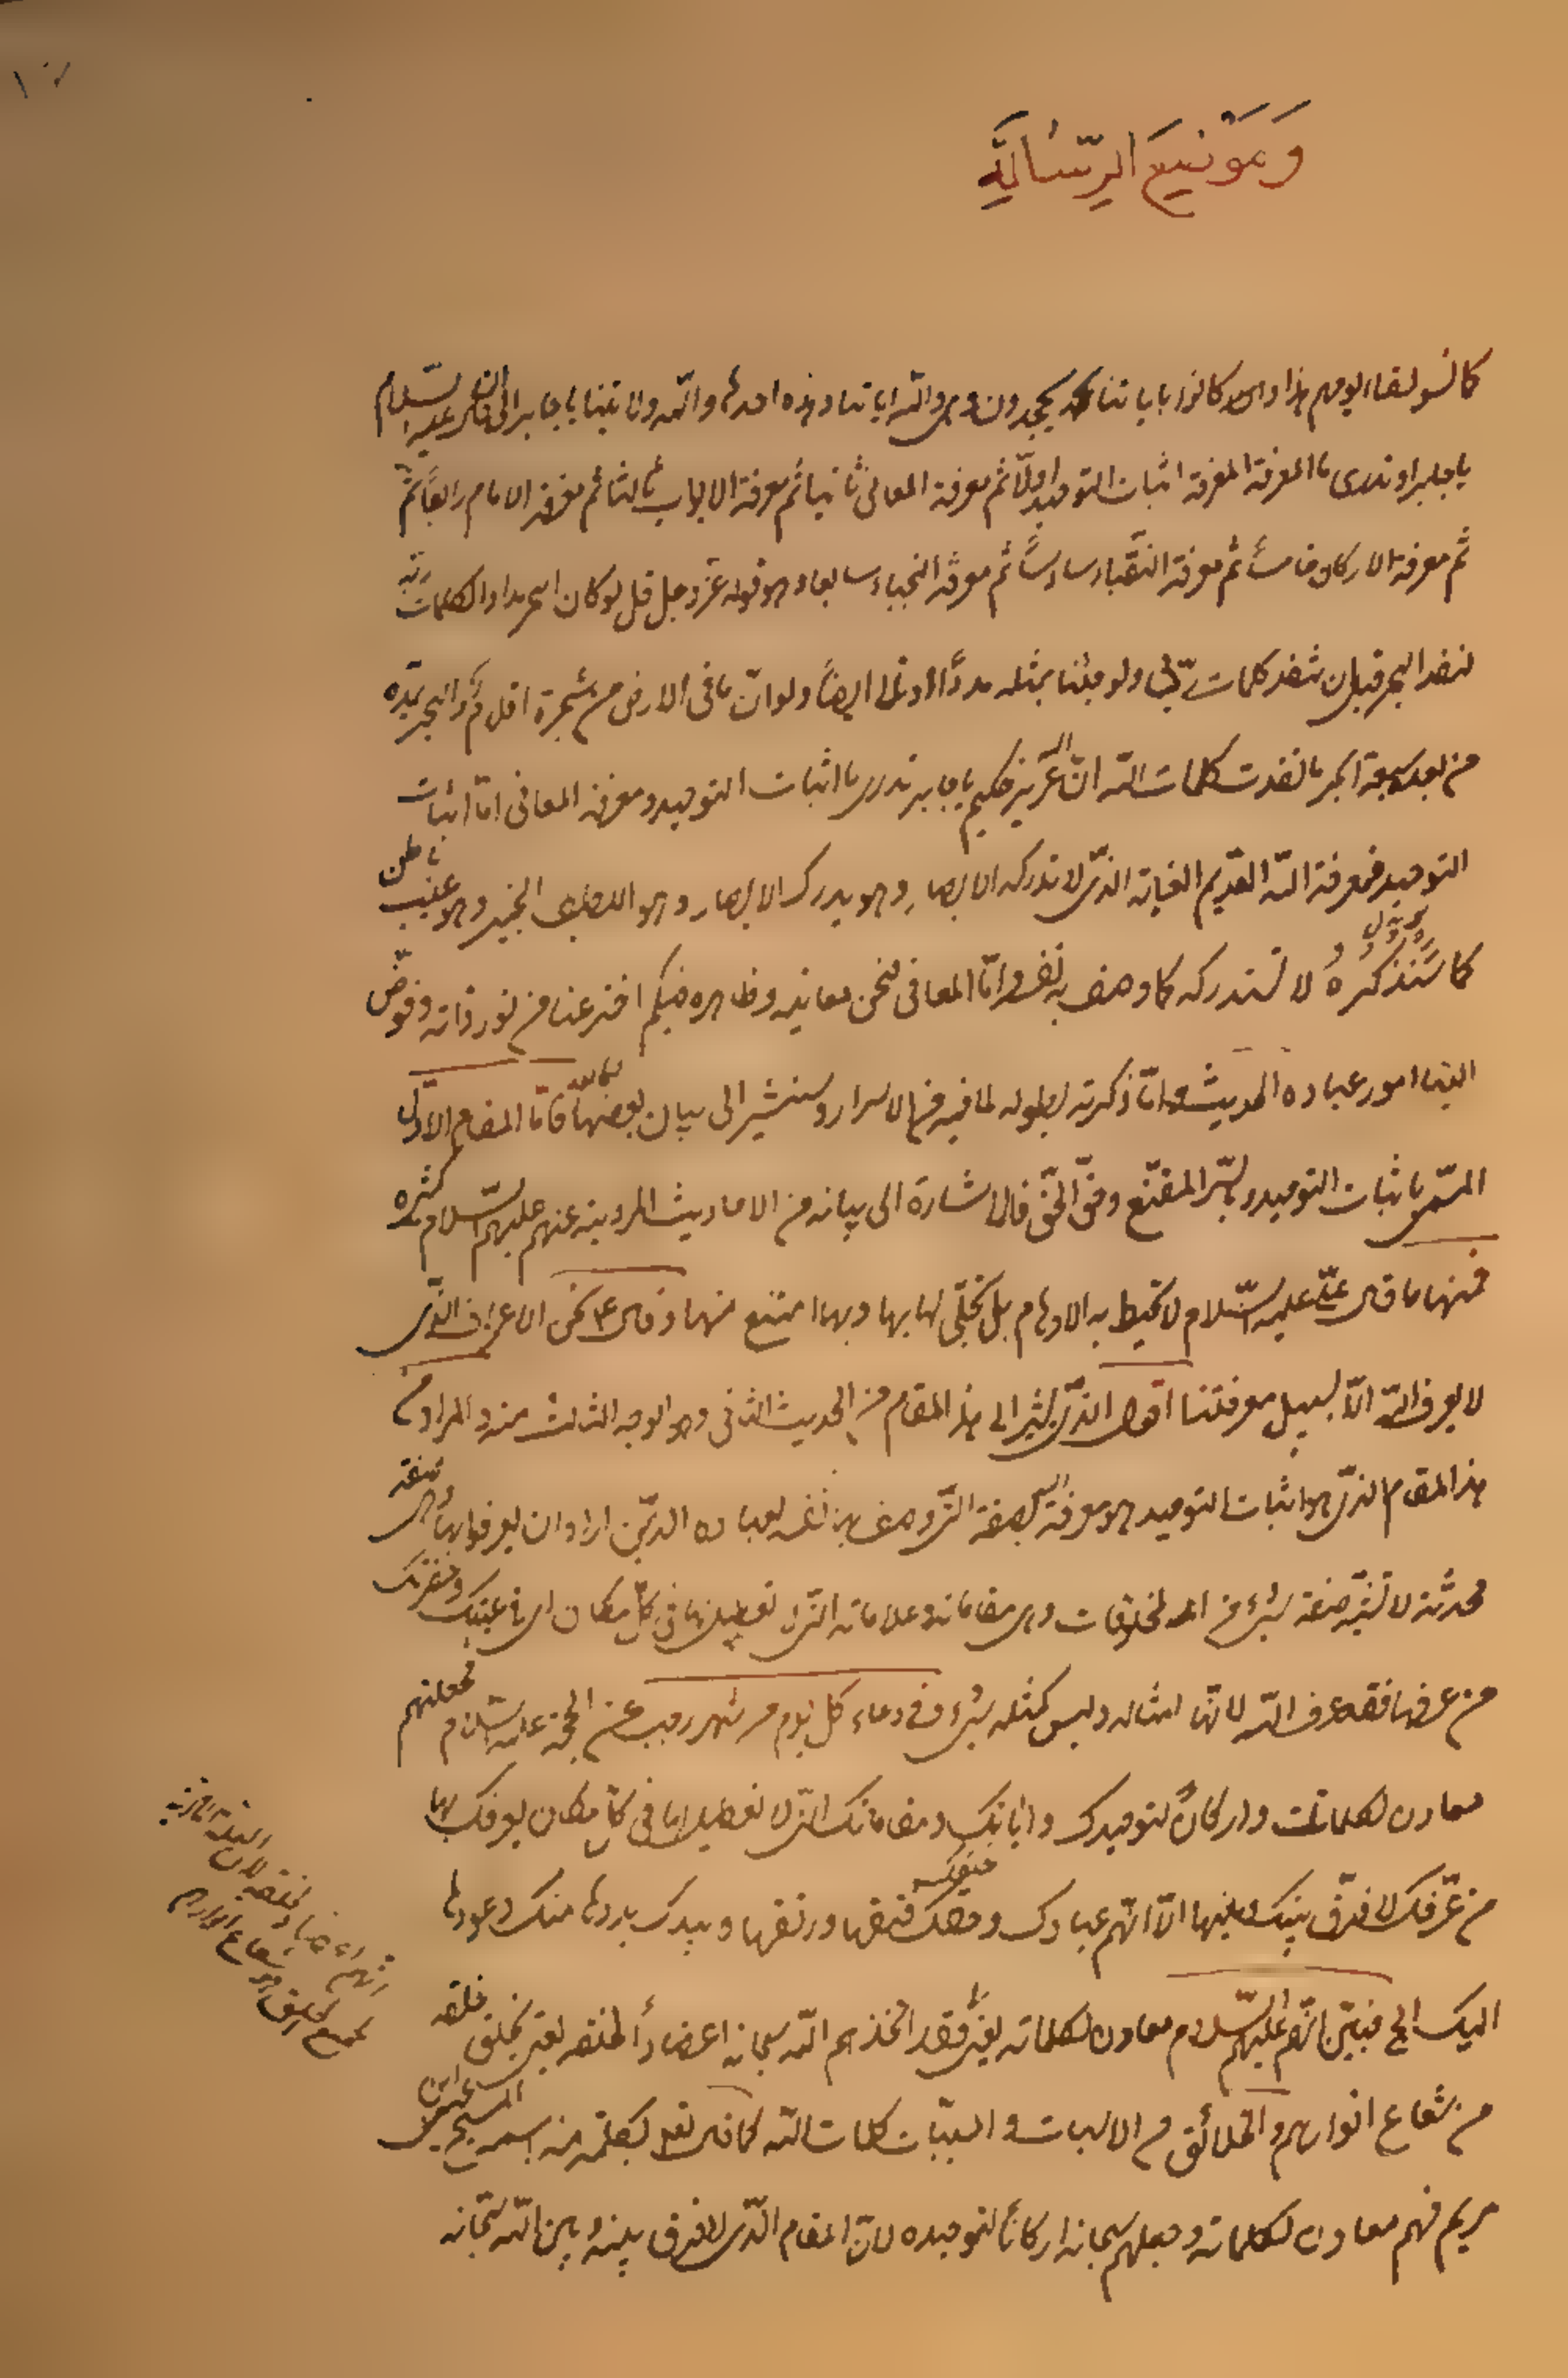 كما نسوا لقاء يومهم هذا وما كانوا باياتنا يجحدون وهي والله اياتنا وهذه احدها وهي والله ولايتنا يا جابر الى ان قال عليه السلام
يا جابر اوتدرى ما المعرفة المعرفة اثبات التوحيد اولا ثم معرفة المعانى ثانيا ثم معرفة الابواب ثالثا ثم معرفة الامام رابعا ثم
ثم معرفة الاركان خامسا ثم معرفة النقباء سادسا ثم معرفة النجباء سابعا وهو قوله عز وجل قل لو كان البحر مدادا لكلمات ربى
لنفد البحر قبل ان تنفد كلمات ربى ولو جئنا بمثله مددا وتلا ايضا ولو ان ما فى الارض من شجرة اقلام والبحر يمده
من بعده سبعة ابحر ما نفدت كلمات الله ان الله عزيز حكيم يا جابر تدرى ما اثبات التوحيد ومعرفة المعانى اما اثبات
التوحيد فمعرفة الله القديم الغاية الذى لا تدركه الابصار وهو يدرك الابصار وهو اللطيف الخبير وهو غيب باطن
كما سنذكره لا تستدركه كما وصف به نفسه واما المعانى فنحن معانيه وظاهره فيكم اخترعنا من نور ذاته وفوض
الينا امور عباده الحديث وانما ذكرته بطوله لما فيه من الاسرار وسنشير الى بيان بعضها فاما المقام الاول
المسمى باثبات التوحيد وبالسر المقنع وحق الحق فالاشارة الى بيانه من الاحاديث المروية عنهم عليهم السلام كثيرة
فمنها ما قال على عليه السلام لا تحيط به الاوهام بل تجلى لها بها وبها امتنع منها وقال ع نحن الاعراف الذى
لا يعرف الله الا بسبيل معرفتنا اقول الذى يشير الى هذا المقام من الحديث الثانى وهو الوجه الثالث منه والمراد من
هذا المقام الذى هو اثبات التوحيد هو معرفة الله بصفة التى وصف بها نفسه لعباده الذين اراد ان يعرفوه بها وهى صفة
محدثة لا تشبه صفة شىء من المخلوقات وهى مقاماته وعلاماته التى لا تعطيل لها فى كل مكان اى فى غيبك وحضرتك
من عرفها فقد عرف الله لانها امثاله وليس كمثله شىء وفى دعاء كل يوم من شهر رجب عن الحجة عليه السلام فجعلتهم
معادن لكلماتك واركانا لتوحيدك واياتك ومقاماتك التى لا تعطيل لها فى كل مكان يعرفك بها
من عرفك لا فرق بينك وبينها الا انهم عبادك وخلقك فتقها ورتقها بيدك بدؤها منك وعودها
اليك الخ فبين انهم عليهم السلام معادن لكلماته يعنى فقد اتخذهم الله سبحانه اعضادا لخلقه يعنى خلق خلقه
من شعاع انوارهم والخلائق من الاسباب والمسببات كلمات الله كما قال تعالى بكلمة منه اسمه المسيح عيسى ابن
مريم فهم معادن لكلماته وجعلهم سبحانه اركانا لتوحيده لان المقام الذى لا فرق بينه وبين الله سبحانه